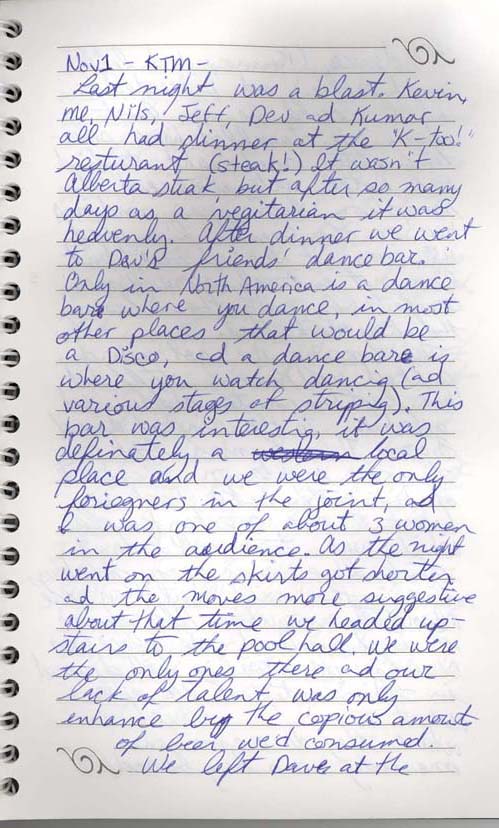 Nov 1 - KTM -
Last night was a blast. Kevin,
me, Nils, Jeff, Dev ad Kumar
all had dinner at the "K-too!"
resturant (steak!) It wasn't
Alberta steak but after so many
days as a vegitarian it was
heavenly. After dinner we went
to Dav's friends' dance bar.
Only in North America is a dance
bar where you dance, in most
other places that would be
a Disco, ad a dance bar is
where you watch dancig (ad
various stages of stripig). This
bar was interestig, it was
definately a western local
place and we were the only
foriegners in the joint, ad
I was one of about 3 women
in the audience. As the night
went on the skirts got shorter
ad the moves more suggestive
about that time we headed up-
stairs to the pool hall. We were
the only ones there ad our
lack of talent was only
enhance by the copious amount
of beer we'd consumed.
We left Daves at the